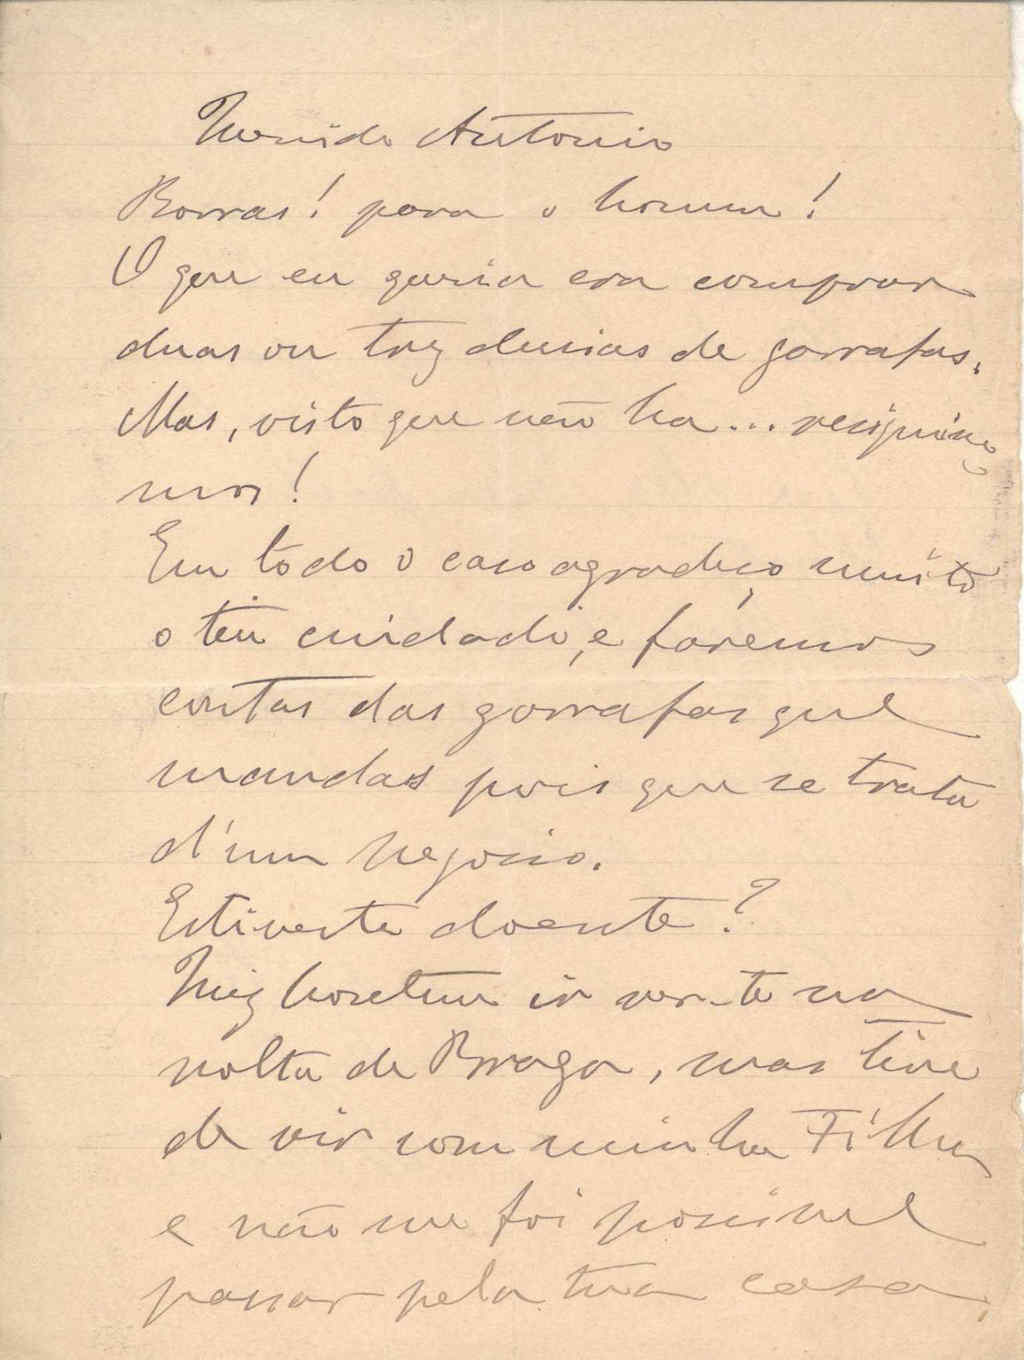 Querido Antonio
Borras! para o homem!
O que eu queria era comprar
duas ou trez duzias de garrafas.
Mas, visto que não ha... resignemo
nos!
Em todo o caso agradeço muito
o teu cuidado, e faremos
contas das garrafas que
mandas pois que se trata
d'um negocio.
Estiveste doente?
Quiz hontem ir ver-te na
volta de Braga, mas tive
de vir com minha Filha
e não me foi possivel
passar pela tua casa,